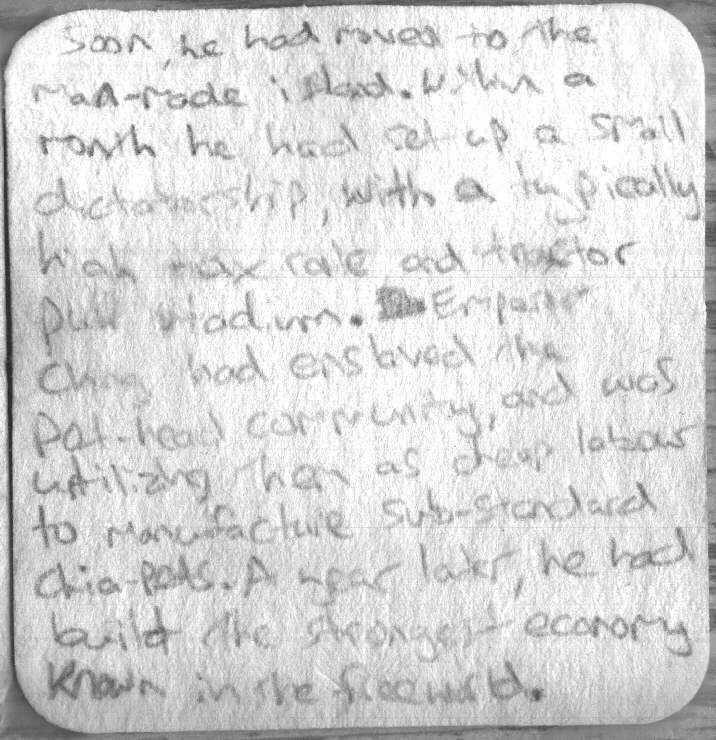 Soon, he had moved to the
man-made island. Within a
month he had set up a small
dictatorship, with a typically
high tax rate and tractor
pull stadium. Emperor
Ching had enslaved the
Pot-head community, and was
utilizing them as cheap labour
to manufacture sub-standard
chia-pets. A year later, he had
build the strongest economy
known in the free world.